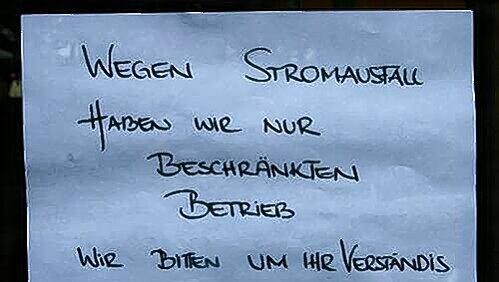 WEGEN STROMAUSFALL
HABEN WIR NUR
BESCHRÄNKTEN
BETRIEB
WIR BITTEN UM IHR VERSTÄNDIS